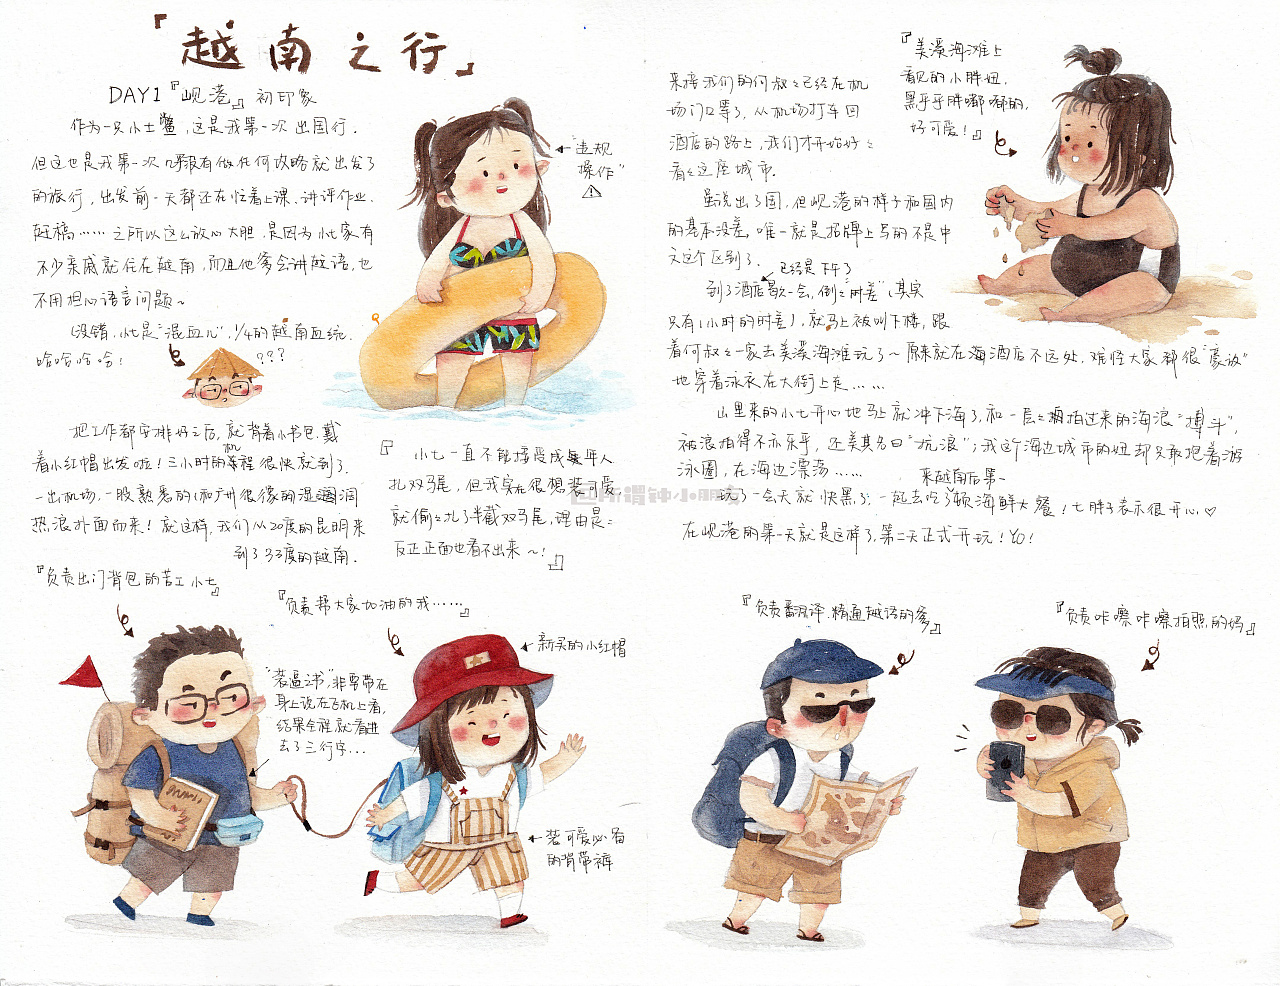 『越南之行』
DAY1『岘港』初印象
作为一只小土鳖,这是我第一次出国行.
但这也是我第一次几乎没有做任何攻略就出发了
的旅行,出发前一天都还在忙着上课.讲评作业.
赶稿……之所以这么放心大胆.是因为小七家有
不少亲戚就住在越南,而且他爹会讲越语,也
不用担心语言问题~
(没错,小七是"混血儿",1/4的越南血统.
哈哈哈哈!
???
把工作都安排好之后,就背着小书包.戴
着小红帽出发啦!三小时的机程很快就到了.
一出机场,一股熟悉的(和广州很像的湿漉漉
热浪扑面而来!就这样,我们从20度的昆明来
到了33度的越南.
←"违规
操作"
小七一直不能接受成年人
扎双马尾,但我实在很想装可爱
就偷偷扎了半截双马尾,理由是:
反正正面也看不出来~!
来接我们的何叔叔已经在机
场门口等了,从机场打车回
酒店的路上,我们才开始好好
看看这座城市.
虽说出了国,但岘港的样子和国内
的基本没差,唯一就是招牌上写的不是中
文这个区别了.
已经是下午了
到了酒店歇一会,倒倒"时差"(其实
只有1小时的时差),就马上被叫下楼,跟
着何叔叔一家去美溪海滩玩了~原来就在海酒店不远处,难怪大家都很"豪放"
地穿着泳衣在大街上走……
山里来的小七开心地马上就冲下海了,和一层层拥拍过来的海浪"搏斗",
被浪拍得不亦乐乎,还美其名曰"抗浪";我这个海边城市的妞却只敢抱着游
泳圈,在海边漂荡……
来越南后第一
玩了一会天就快黑了,一起去吃了顿海鲜大餐!七胖子表示很开心♡
在岘港的第一天就是这样了,第二天正式开玩!YO!
『美溪海滩上
看见的小胖妞.
黑乎乎胖嘟嘟的,
好可爱!』
所谓钟小朋友
『负责出门背包的苦工小七』
"装逼之书",非要带在
身上说在飞机上看,
结果全程就看进
去了三行字...
『负责帮大家加油的我……』
←新买的小红帽
←装可爱必备
的背带裤
『负责翻译.精通越语的爹』
『负责咔嚓咔嚓拍照的妈』